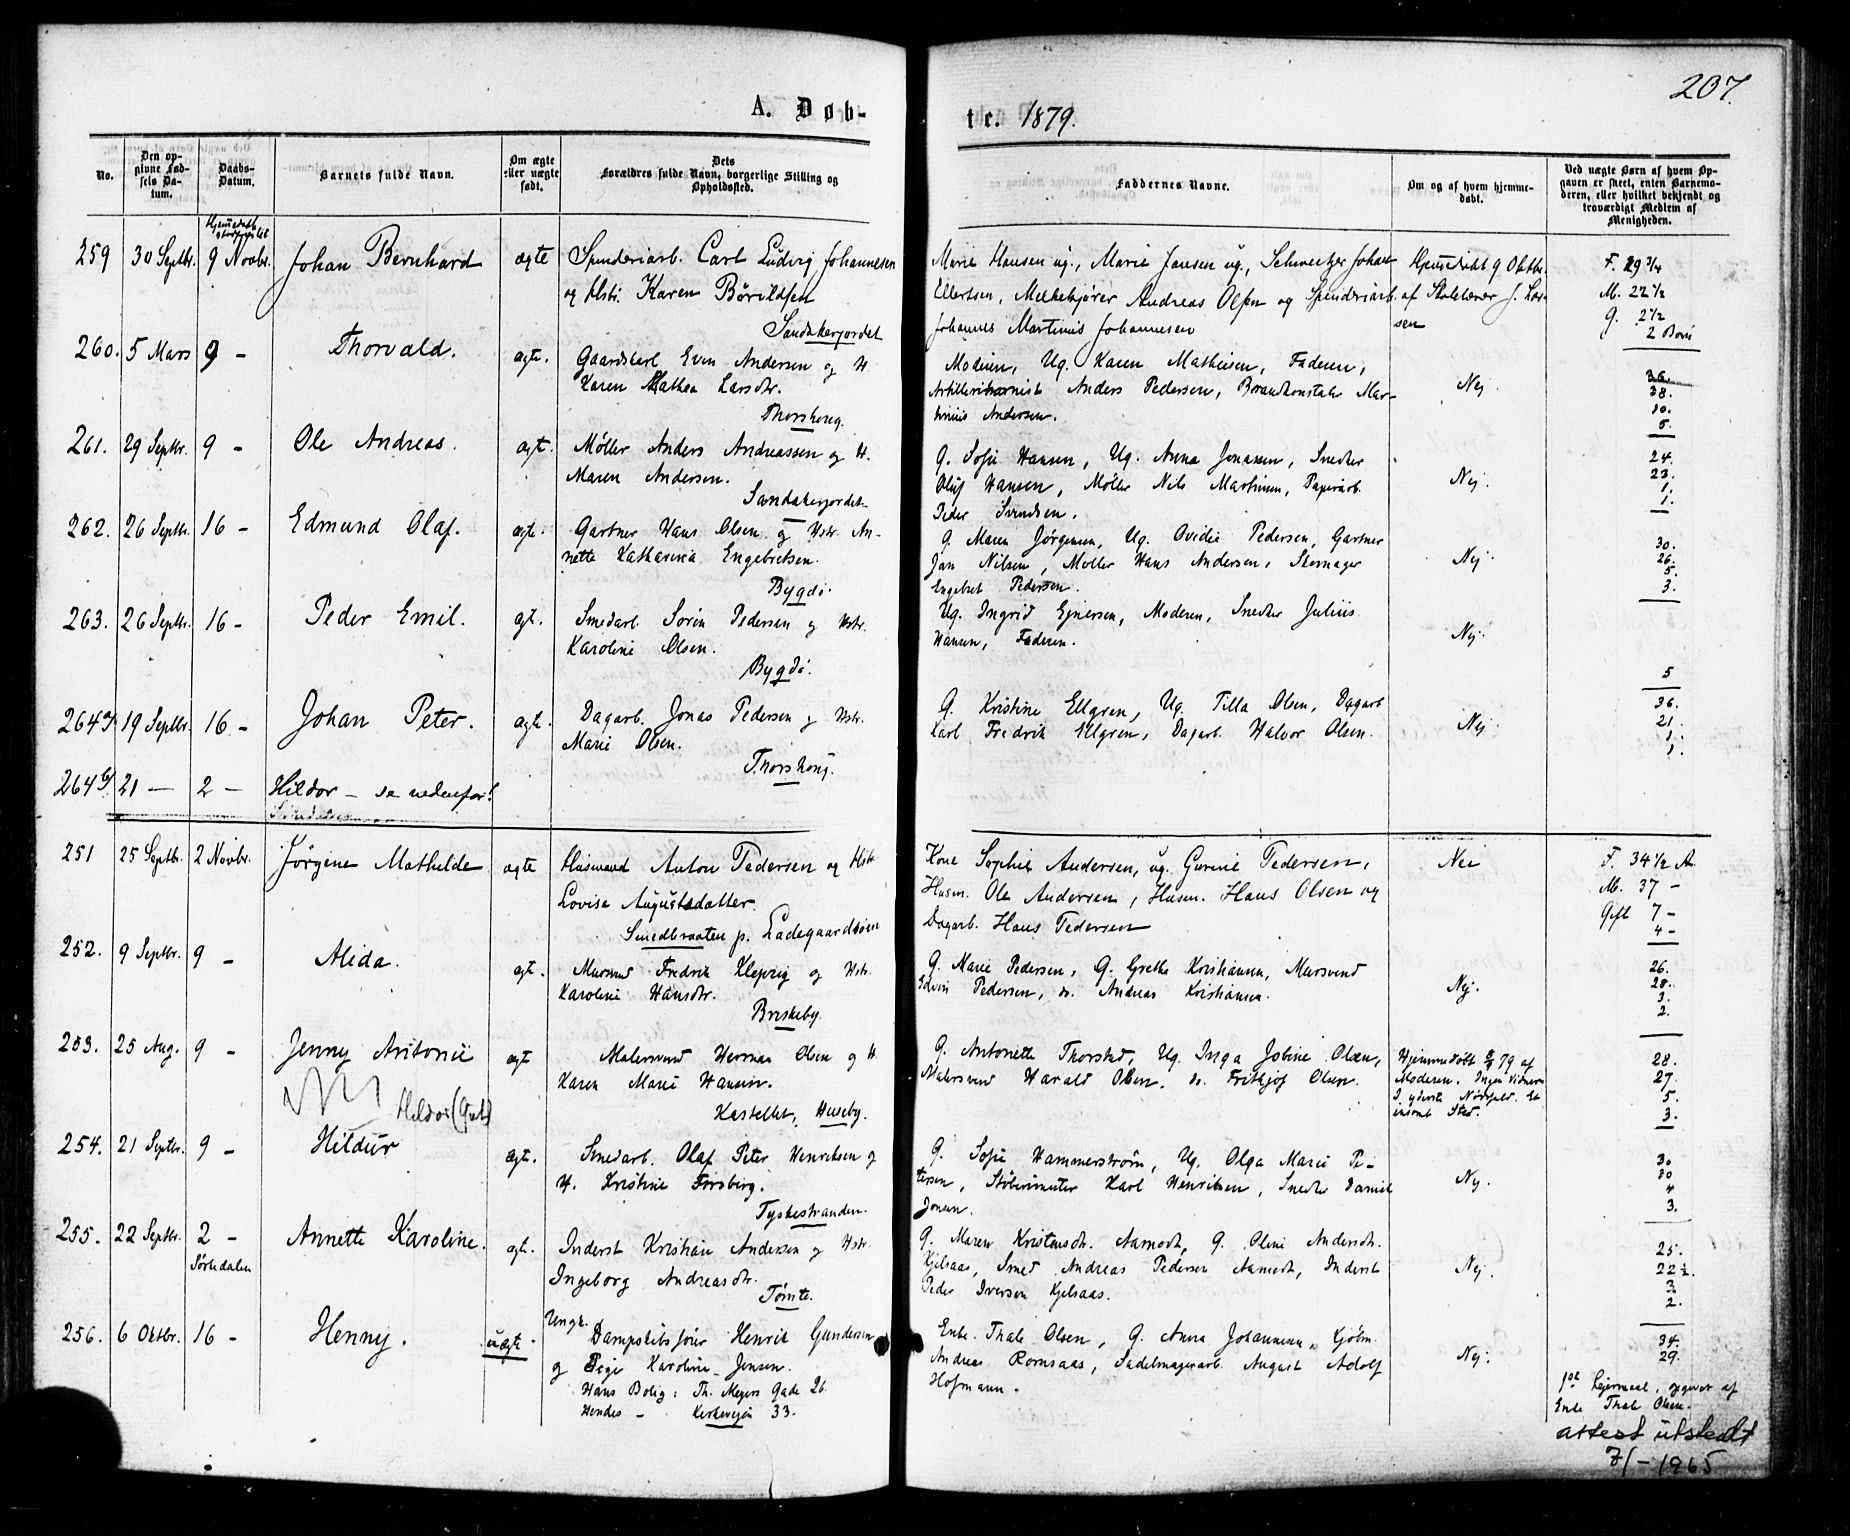 207.
A. Døb-
te. 1879.
No.
Den op-
givne Fød-
sels Da-
tum.
Daabs-
Datum.
Barnets fulde Navn.
Om ægte
eller uægte
født.
Dets
Forældres fulde Navn, borgerlige Stilling og
Opholdssted.
Faddernes Navne.
Om og af hvem hjemme-
døbt.
Ved uægte Børn af hvem Op-
gaven er skeet, enten Barnemo-
deren, eller hvilket bekjendt og
troværdigt Medlem af
Menigheden.
Hjemmedøbt
259 30 Septbr. 9 Novbr. Johan Bernhard ægte Spinderiarb. Carl Ludvig Johannesen
og Hstr. Karen Børildsen
Sandakerjordet
Marie Hansen ug., Marie Jansen ug., Schweitzer Johan
Ellertsen, Melkekjører Andreas Olsen og Spinderiarb.
Johannes Martinius Johannesen
Hjemmedøbt 9 Oktbr.
af Skolelærer J. Lar-
sen
F. 29 3/4
M. 22 1/2
G. 2 1/2
2 Børn
260. 5 Mars 9 - Thorvald. ægte. Gaardskarl Even Andersen og H.
Karen Mathea Larsdtr.
Thorshoug.
Moderen, Ug. Karen Mathiesen, Faderen,
Artillerihornist Anders Pedersen, Brandkonstabr Mar-
tinius Andersen.
Nej.
36.
38.
10.
5.
261. 29 Septbr. 9 - Ole Andreas. ægt. Møller Anders Andreassen og H.
Maren Andersen.
Sandakerjordet
G. Sofie Hansen, Ug. Anna Jonassen, Snedker
Oluf Hansen, Møller Nils Martinsen, Papirarb.
Peder Svendsen.
Nej.
24.
23.
1.
1.
262. 26 Septbr. 16 - Edmund Olaf. ægte. Gartner Hans Olsen og Hstr. An-
nette Katharina Engebretsen.
Bygdø.
G. Maren Jørgensen, Ug. Ovidia Pedersen, Gartner
Jan Nilsen, Møller Hans Andersen, Skomager
Engebret Pedersen.
Nej.
30.
26.
5.
3.
263. 26 Septbr. 16 - Peder Emil. ægt. Smedarb. Sørin Pedersen og Hstr.
Karoline Olsen.
Bygdø.
Ug. Ingrid Ejnersen, Moderen, Snedker Julius
Hansen, Faderen.
Nej.
5
264a 19 Septbr. 16 - Johan Peter. ægte. Dagarb. Jonas Pedersen og Hstr.
Marie Olsen.
Thorshoug.
G. Kristine Ellgren, Ug. Tilla Olsen, Dagarb
Karl Fredrik Ellgren, Dagarb. Halvor Olsen.
Nej.
36.
21.
1.
1.
264b 21 — 2 - Hildor - se nedenfor!
251 25 Septbr. 2 Novbr. Jørgine Mathilde ægte Husmand Anton Pedersen og Hstr
Lovise Augustsdatter
Smedbraaten p. Ladegaardsøen
Kone Sophie Andersen, ug. Gurine Pedersen,
Husm. Ole Andersen, Husm. Hans Olsen og
Dagarb. Hans Pedersen
Nei
F. 34 1/2 A
M. 37 -
Gift 7 -
4 -
252. 9 Septbr. 9 - Alida. ægt. Mursvend Fredrik Klepzig og Hstr.
Karoline Hansdtr.
Briskeby.
G. Marie Pedersen, G. Grethe Kristiansen, Mursvend
Edvin Pedersen, do. Andreas Kristiansen.
Nej.
26.
28.
3.
2.
253. 25 Aug. 9 - Jenny Antonie ægt Malersvend Herman Olsen og H
Karen Marie Hansen.
Kastellet, Huseby.
G. Antonette Thorstad, Ug. Inga Jobine Olsen,
Malersvend Harald Olsen. do. Frithjof Olsen.
Hjemmedøbt 2/9 79 af
Moderen. Ingen Vidner
I yderste Nødsfald. Et
ensomt Sted.
28.
27.
5.
3.
Hildor (Gut)
254. 21 Septbr. 9 - Hildur ægt. Smedarb. Olaf Peter Henriksen og
H. Kristine Forsberg.
Tyskestranden.
G. Sofie Hammerstrøm, Ug. Olga Marie Pe-
tersen, Støberimester Karl Henriksen, Snedker Daniel
Jonsen.
Nej.
30
30
4
3.
255. 22 Septbr. 2 - Annette Karoline. ægt. Inderst Kristian Andersen og Hstr.
Sørkedalen
Ingeborg Andreasdtr.
Tømte.
G. Maren Kristensdtr. Aamodt, G. Oline Andersdtr.
Kjelsaas, Smed Andreas Pedersen Aamodt, Inderst
Peder Iversen Kjelsaas.
Nej.
25.
22 1/2.
3.
2.
256. 6 Oktbr. 16 - Henny. uægte. Ungk. Dampskibsfører Henrik Gundersen
og Pige Karoline Jensen.
Hans Bolig: Th. Meyers Gade 26.
Hendes - Kirkevejen 33.
Enke Thale Olsen, G. Anna Johannesen, Kjøbm.
Andreas Romsaas, Sadelmagerarb. August Adolf
Hofmann.
Nej.
34.
29.
1ste Lejermaal, opgivet af
Enke Thale Olsen.
attest utstedt
7/ - 1965